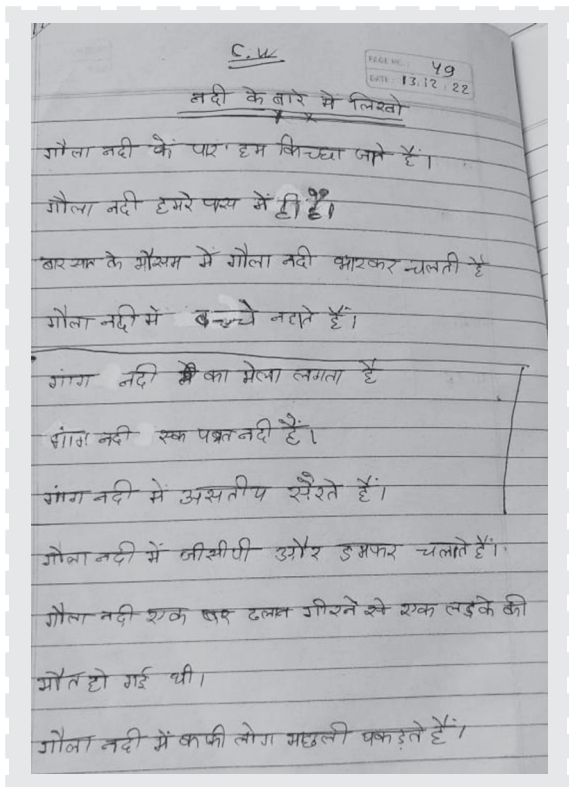 C.W
PAGE NO.: 49
DATE: 13.12.22
नदी के बारे मे लिखो
गौला नदी कें पार हम किच्छा जाते हैं।
गौला नदी हमरे पास में ही है।
बारसात के मौसम में गौला नदी भारकर चलती है
गौला नदी में बच्चे नहाते हैं।
गांग नदी का मेला लगता है
गांग नदी एक पवत्र नदी हैं।
गांग नदी में असतीय सेरते हैं।
गौला नदी में जीसीपी और डमफर चलाते हैं।
गौला नदी एक बार ढलान गीरने से एक लड़के की
मौत हो गई थी।
गौला नदी में कफी लोग मछली पकड़ते हैं।